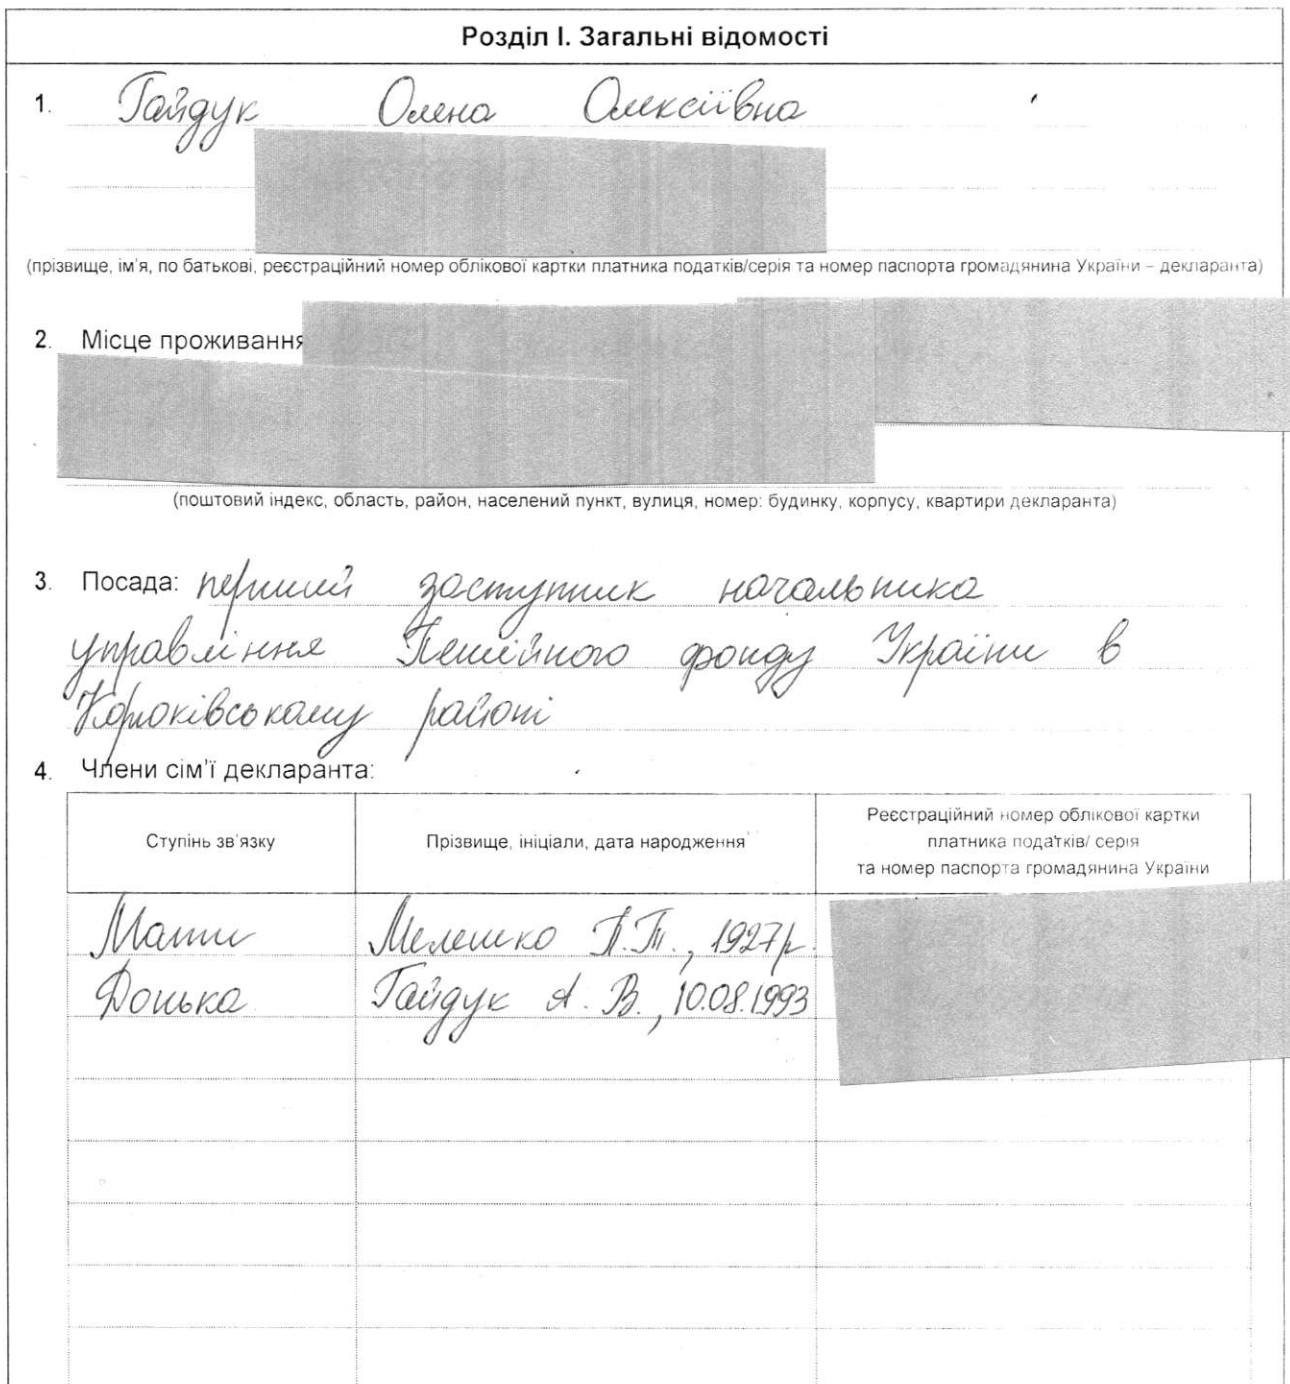 Розділ І. Загальні відомості
1. Гайдук Олена Олексіївна
(прізвище, ім'я, по батькові, реєстраційний номер облікової картки платника податків/серія та номер паспорта громадянина України – декларанта)
2. Місце проживання
(поштовий індекс, область, район, населений пункт, вулиця, номер: будинку, корпусу, квартири декларанта)
3. Посада: перший заступник начальника
управління Пенсійного фонду України в
Корюківському районі
4. Члени сім'ї декларанта:
Ступінь зв'язку
Прізвище, ініціали, дата народження
Реєстраційний номер облікової картки
платника податків/ серія
та номер паспорта громадянина України
Мати Мелешко П.Т., 1927р.
Донька Гайдук А. В., 10.08.1993